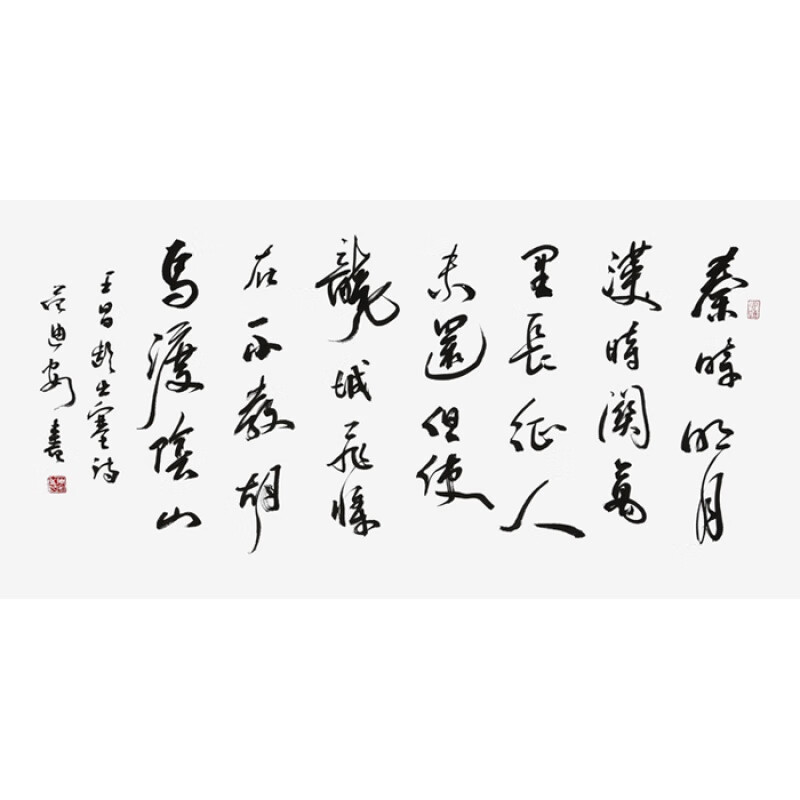 秦時明月
漢時關萬
里長征人
未還但使
龍城飛將
在不教胡
馬渡陰山
王昌齡出塞詩
范迪安書